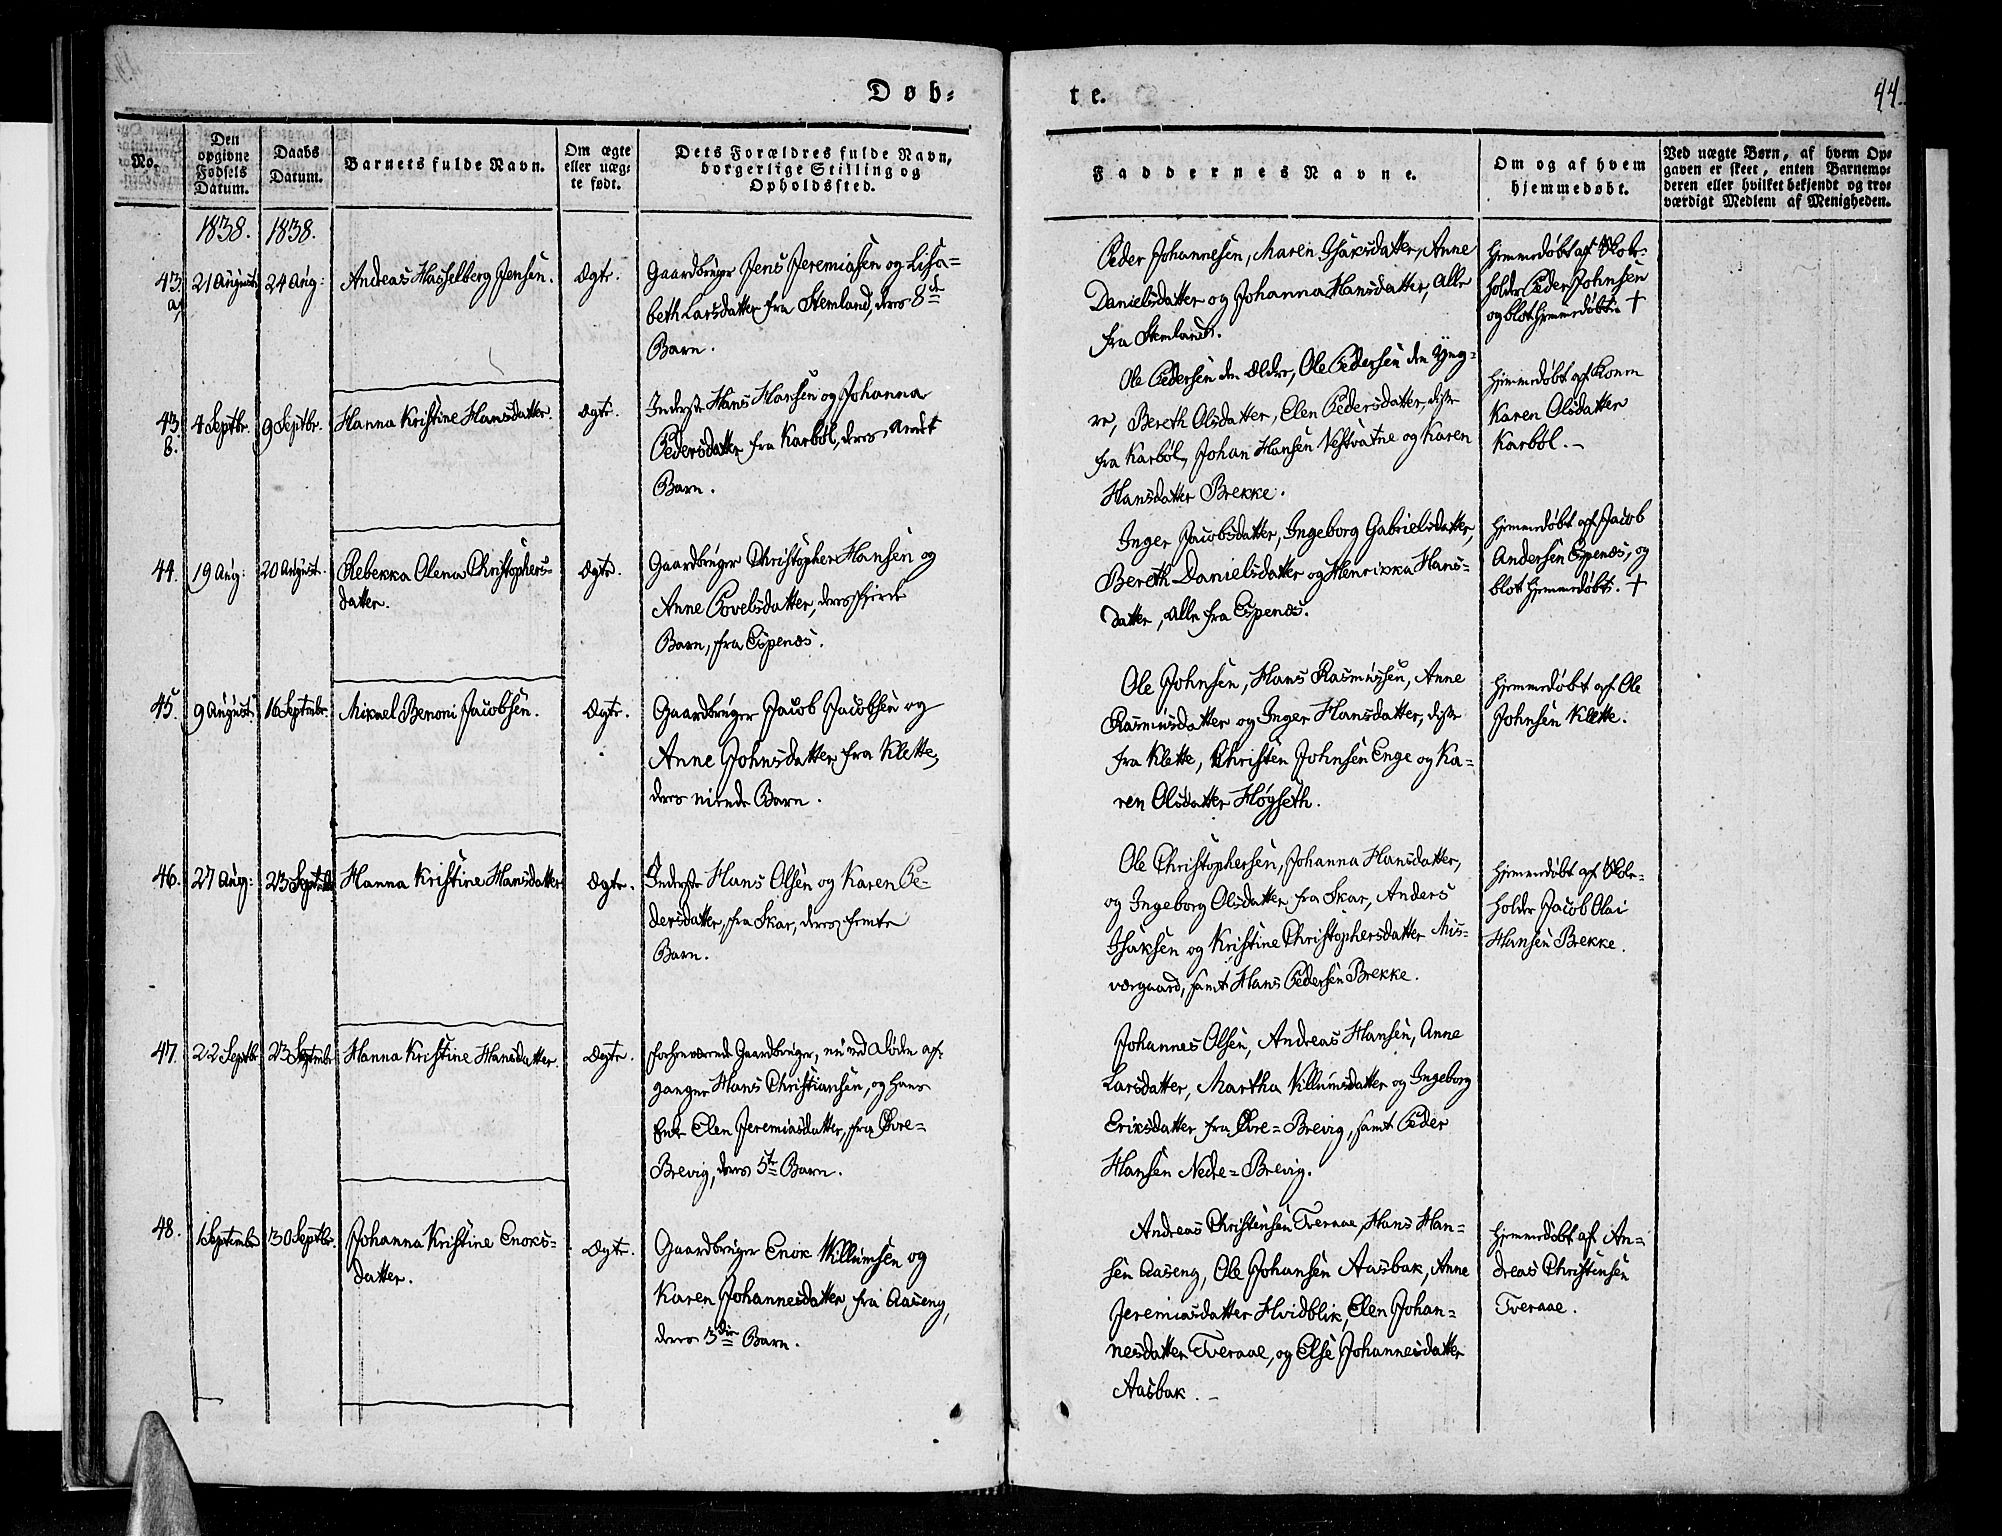 Døb-
te.
44.
No.
Den
opgivne
Fødsels
Datum.
Daabs
Datum.
Barnets fulde Navn.
Om ægte
eller uæg-
te født.
Dets Forældres fulde Navn,
borgerlige Stilling og
Opholdssted.
Faddernes Navne.
Om og af hvem
hjemmedøbt.
Ved uægte Børn, af hvem Op-
gaven er skeet, enten Barnemo-
deren eller hvilket bekjendt og tro-
værdigt Medlem af Menigheden.
1838. 1838.
43 a,
21 August
24 Aug:
Andreas Hasselberg Jensen.
Ægte.
Gaardbruger Jens Jeremiasen og Lisa-
beth Larsdatter fra Stemland, deres 8de
Barn.
Peder Johannesen, Maren Isaksdatter, Anne
Danielsdatter og Johanna Hansdatter, alle
fra Stemland.
Hjemmedøbt af Skole-
holder Peder Johnsen
og blot hjemmedøbt. †
43 b.
4 Septbr.
9 Septbr.
Hanna Kristine Hansdatter.
Ægte.
Inderste Hans Hansen og Johanna
Pedersdatter fra Karbøl, deres andet
Barn.
Ole Pedersen den Ældre, Ole Pedersen den Yng-
re, Bereth Olsdatter, Elen Pedersdatter, disse
fra Karbøl, Johan Hansen Vestvatne og Karen
Hansdatter Brekke.
Hjemmedøbt af Konen
Karen Olsdatter
Karbøl. –
44.
19 Aug:
20 August.
Rebekka Olena Christophers-
datter.
Ægte.
Gaardbruger Christopher Hansen og
Anne Povelsdatter, deres fjerde
Barn, fra Espenæs.
Inger Jacobsdatter, Ingeborg Gabrielsdatter,
Bereth Danielsdatter og Henrikka Hans-
datter, alle fra Espenæs.
Hjemmedøbt af Jacob
Andersen Espenæs, og
blot hjemmedøbt. †
45.
9 August
16 Septembr.
Mikael Benoni Jacobsen.
Ægte.
Gaardbruger Jacob Jacobsen og
Anne Johnsdatter fra Klette,
deres niende Barn.
Ole Johnsen, Hans Rasmussen, Anne
Rasmusdatter og Inger Hansdatter, disse
fra Klette, Christen Johnsen Enge og Ka-
ren Olsdatter Høgseth.
Hjemmedøbt af Ole
Johnsen Klette.
46.
27 Aug:
23 Septembr
Hanna Kristine Hansdatter
Ægte.
Inderste Hans Olsen og Karen Pe-
dersdatter, fra Skar, deres femte
Barn.
Ole Christophersen, Johanna Hansdatter,
og Ingeborg Olsdatter fra Skar, Anders
Isaksen og Kristine Christophersdatter Mis-
værgaard, samt Hans Pedersen Brekke.
Hjemmedøbt af Skole-
holder Jacob Olai
Hansen Brekke.
47.
22 Septbr
23 Septembr
Hanna Kristine Hansdatter.
Ægte.
Forhenværende Gaardbruger, nu ved Døden af-
gangne Hans Christiansen, og hans
Enke Elen Jeremiasdatter, fra Øvre-
Brevig, deres 5te Barn.
Johannes Olsen, Andreas Hansen, Anne
Larsdatter, Martha Villumsdatter og Ingeborg
Eriksdatter fra Øvre-Brevig, samt Peder
Hansen Nedre-Brevig.
48.
1 September
30 Septbr.
Johanna Kristine Enoks-
datter.
Ægte.
Gaardbruger Enok Willumsen og
Karen Johannesdatter fra Aaseng,
deres 3die Barn.
Andreas Christensen Tveraae, Hans Han-
sen Aaseng, Ole Johansen Aasbak, Anne
Jeremiasdatter Hvidblik, Elen Johan-
nesdatter Tveraae, og Else Johannesdatter
Aasbak. –
Hjemmedøbt af An-
dreas Christensen
Tveraae.